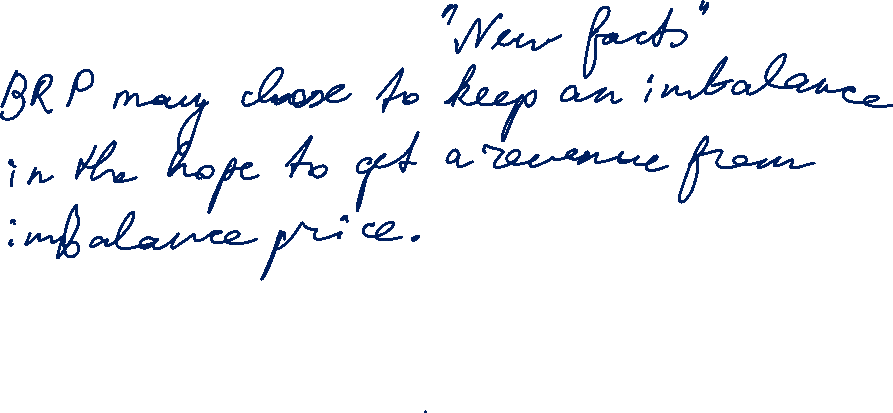 "New facts"
BRP may choose to keep an imbalance
in the hope to get a revenue from
imbalance price.